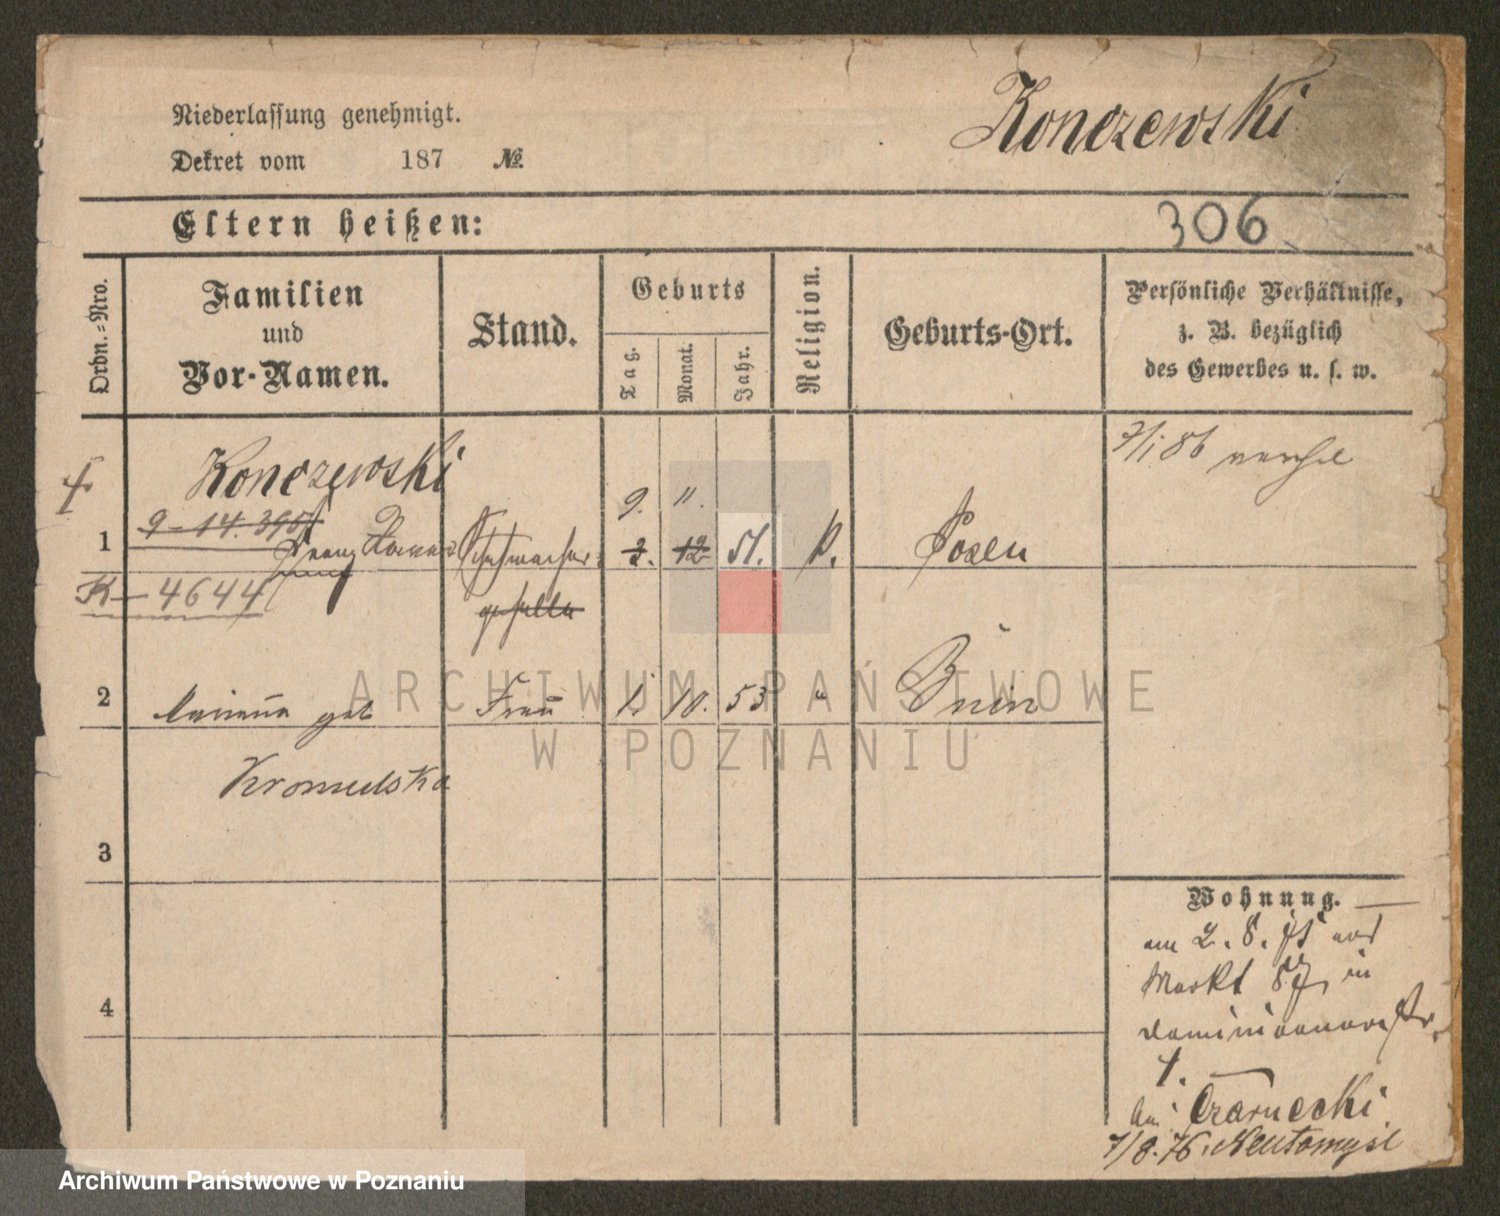 Niederlassung genehmigt.
Dekret vom 187 №
Konczewski
Eltern heißen:
306
Ordn.-Nro.
Familien
und
Vor-Namen.
Stand.
Geburts
Tag.
Monat.
Jahr.
Religion.
Geburts-Ort.
Persönliche Verhältnisse,
z. B. bezüglich
des Gewerbes u. s. w.
7/1.86
Konczewski
9-14.395
1 Franz 9. 11. 51. k. Posen
K-4644
geselle
2 Marianna geb Frau 1. 10. 53 " Bnin
3
4
Wohnung.
am 2. 8. 75 aus
Markt 87, in
Dominicanerstr.
1.
bei Czarnecki
7/8.76. Neutomysl
ARCHIWUM PAŃSTWOWE
W POZNANIU
Archiwum Państwowe w Poznaniu